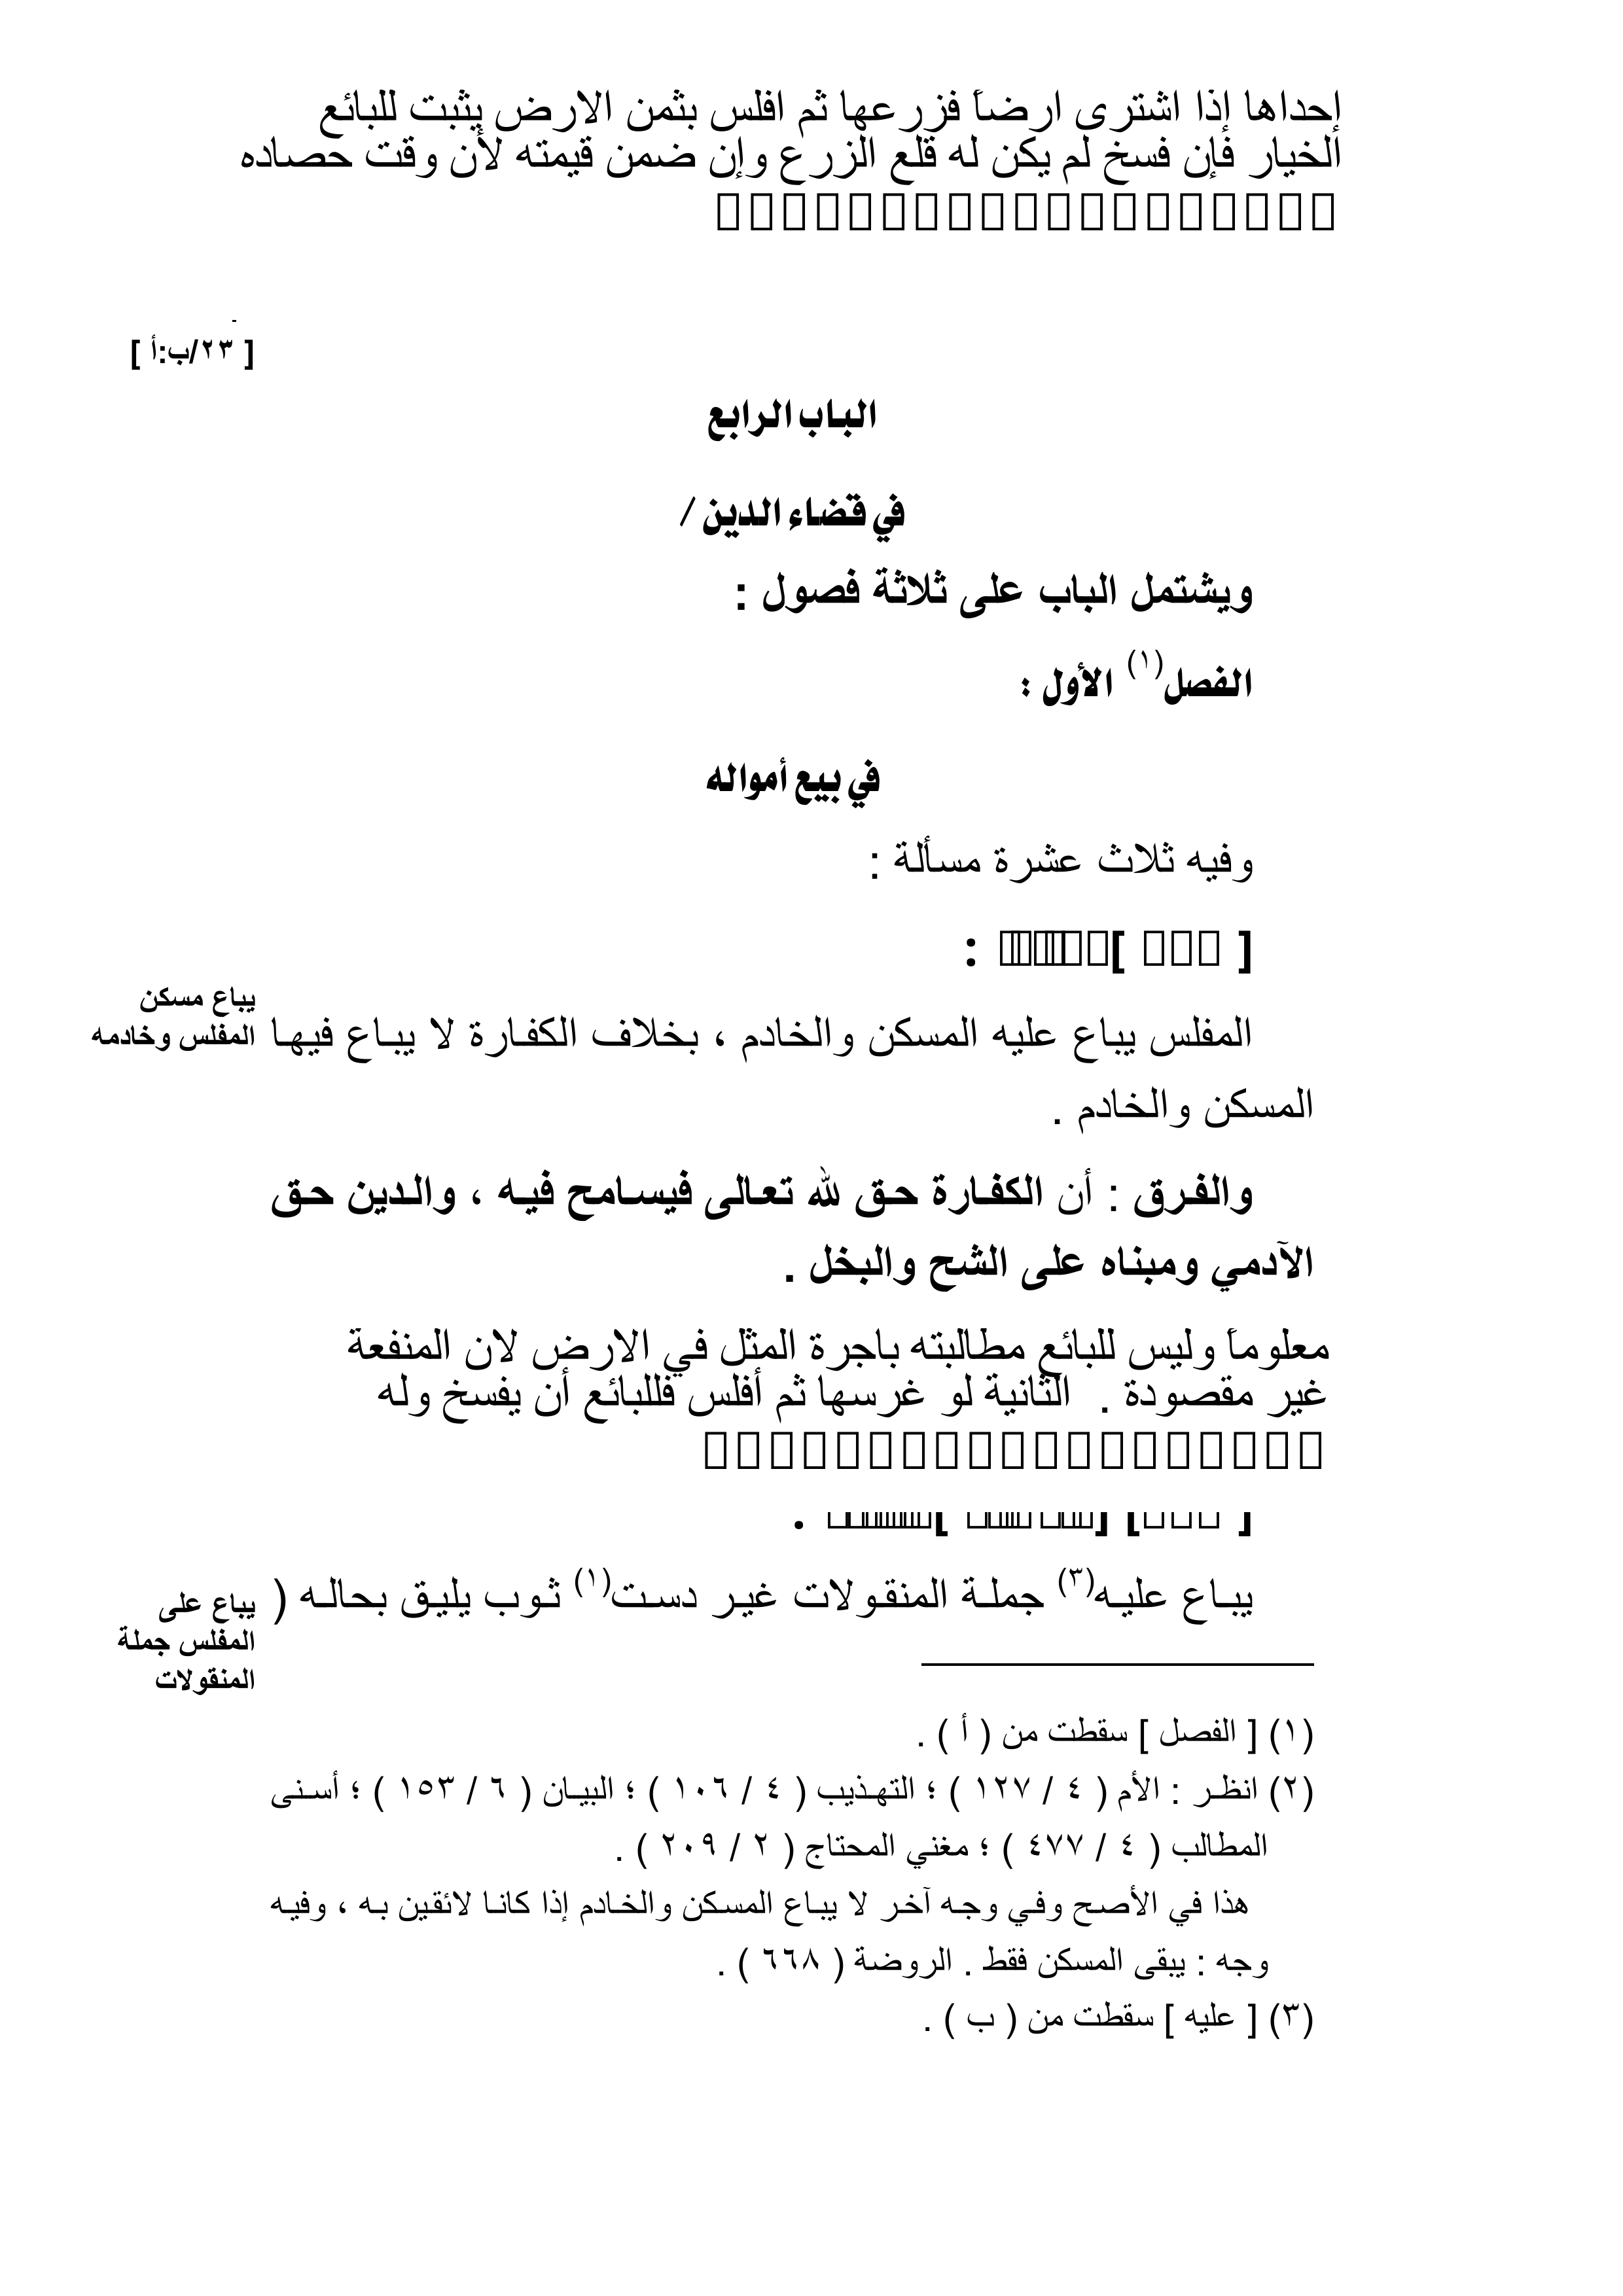 إحداها إذا اشترى ارضاً فزرعها ثم افلس بثمن الارض يثبت للبائع
الخيار فإن فسخ لم يكن له قلع الزرع وإن ضمن قيمته لأن وقت حصاده
[ ٢٣/ب:أ ]
الباب الرابع
في قضاء الدين /
ويشتمل الباب على ثلاثة فصول :
الفصل(١) الأول :
في بيع أمواله
وفيه ثلاث عشرة مسألة :
يباع مسكن
المفلس وخادمه
المفلس يباع عليه المسكن والخادم ، بخلاف الكفارة لا يباع فيها
المسكن والخادم .
والفرق : أن الكفارة حق لله تعالى فيسامح فيه ، والدين حق
الآدمي ومبناه على الشح والبخل .
معلوماً وليس للبائع مطالبته باجرة المثل في الارض لان المنفعة
غير مقصودة . الثانية لو غرسها ثم أفلس فللبائع أن يفسخ وله
يباع عليه(٣) جملة المنقولات غير دست(١) ثوب يليق بحاله (
يباع على
المفلس جملة
المنقولات
(١) [ الفصل ] سقطت من ( أ ) .
(٢) انظر : الأم ( ٤ / ١٢٧ ) ؛ التهذيب ( ٤ / ١٠٦ ) ؛ البيان ( ٦ / ١٥٣ ) ؛ أسنى
المطالب ( ٤ / ٤٧٧ ) ؛ مغني المحتاج ( ٢ / ٢٠٩ ) .
هذا في الأصح وفي وجه آخر لا يباع المسكن والخادم إذا كانا لائقين به ، وفيه
وجه : يبقى المسكن فقط . الروضة ( ٦٦٨ ) .
(٣) [ عليه ] سقطت من ( ب ) .